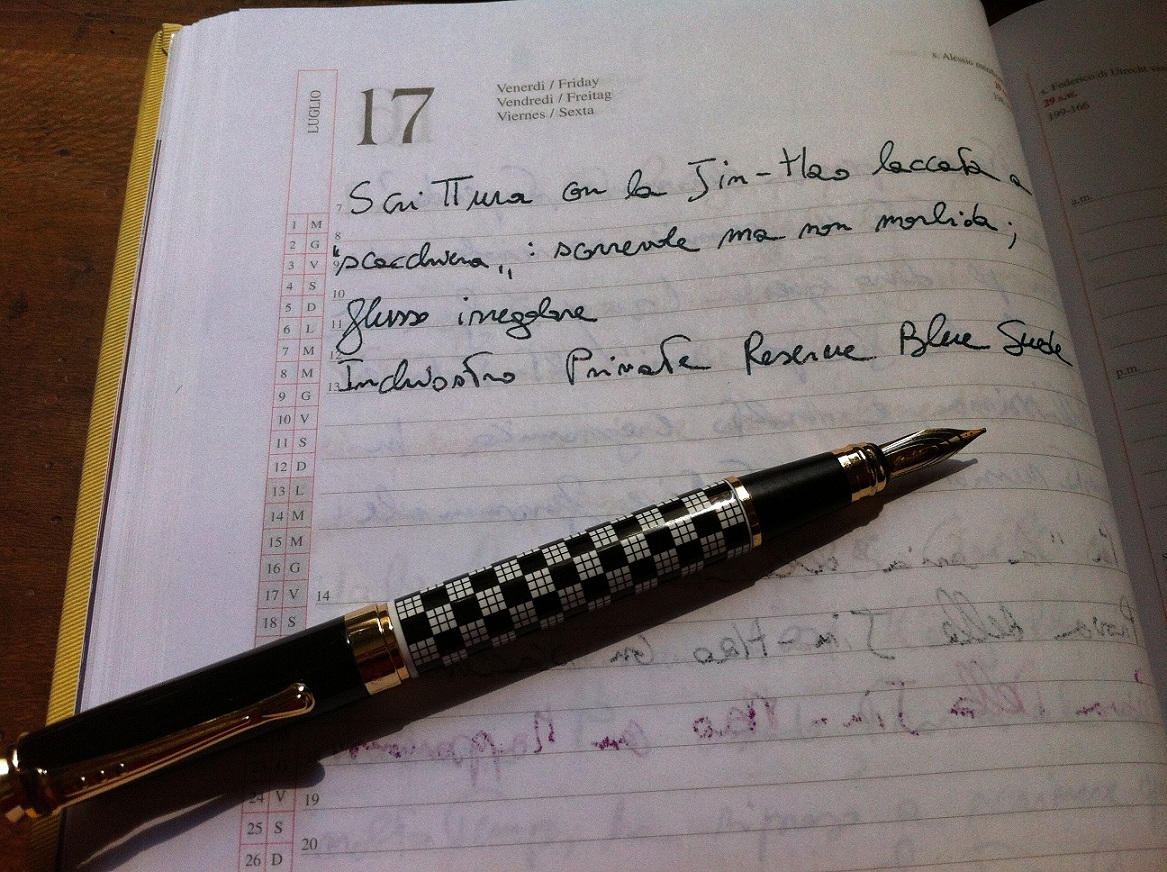 LUGLIO
17
Venerdì / Friday
Vendredi / Freitag
Viernes / Sexta
s. Alessio
s. Federico di Utrecht
29 s.w.
199-166
a.m.
p.m.
7 Scrittura con la Jin-Hao laccata a
8
9 "scacchiera„: scorrevole ma non morbida;
10
11 flusso irregolare
12
13 Inchiostro Private Reserve Blue Suede
1 M
2 G
3 V
4 S
5 D
6 L
7 M
8 M
9 G
10 V
11 S
12 D
13 L
14 M
15 M
16 G
17 V 14
18 S
24 V 19
25 S
20
26 D